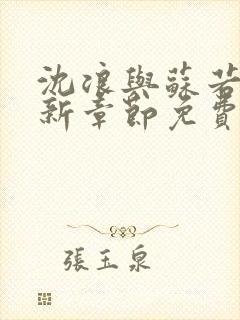 沈浪與蘇若
新章節免費
張玉泉